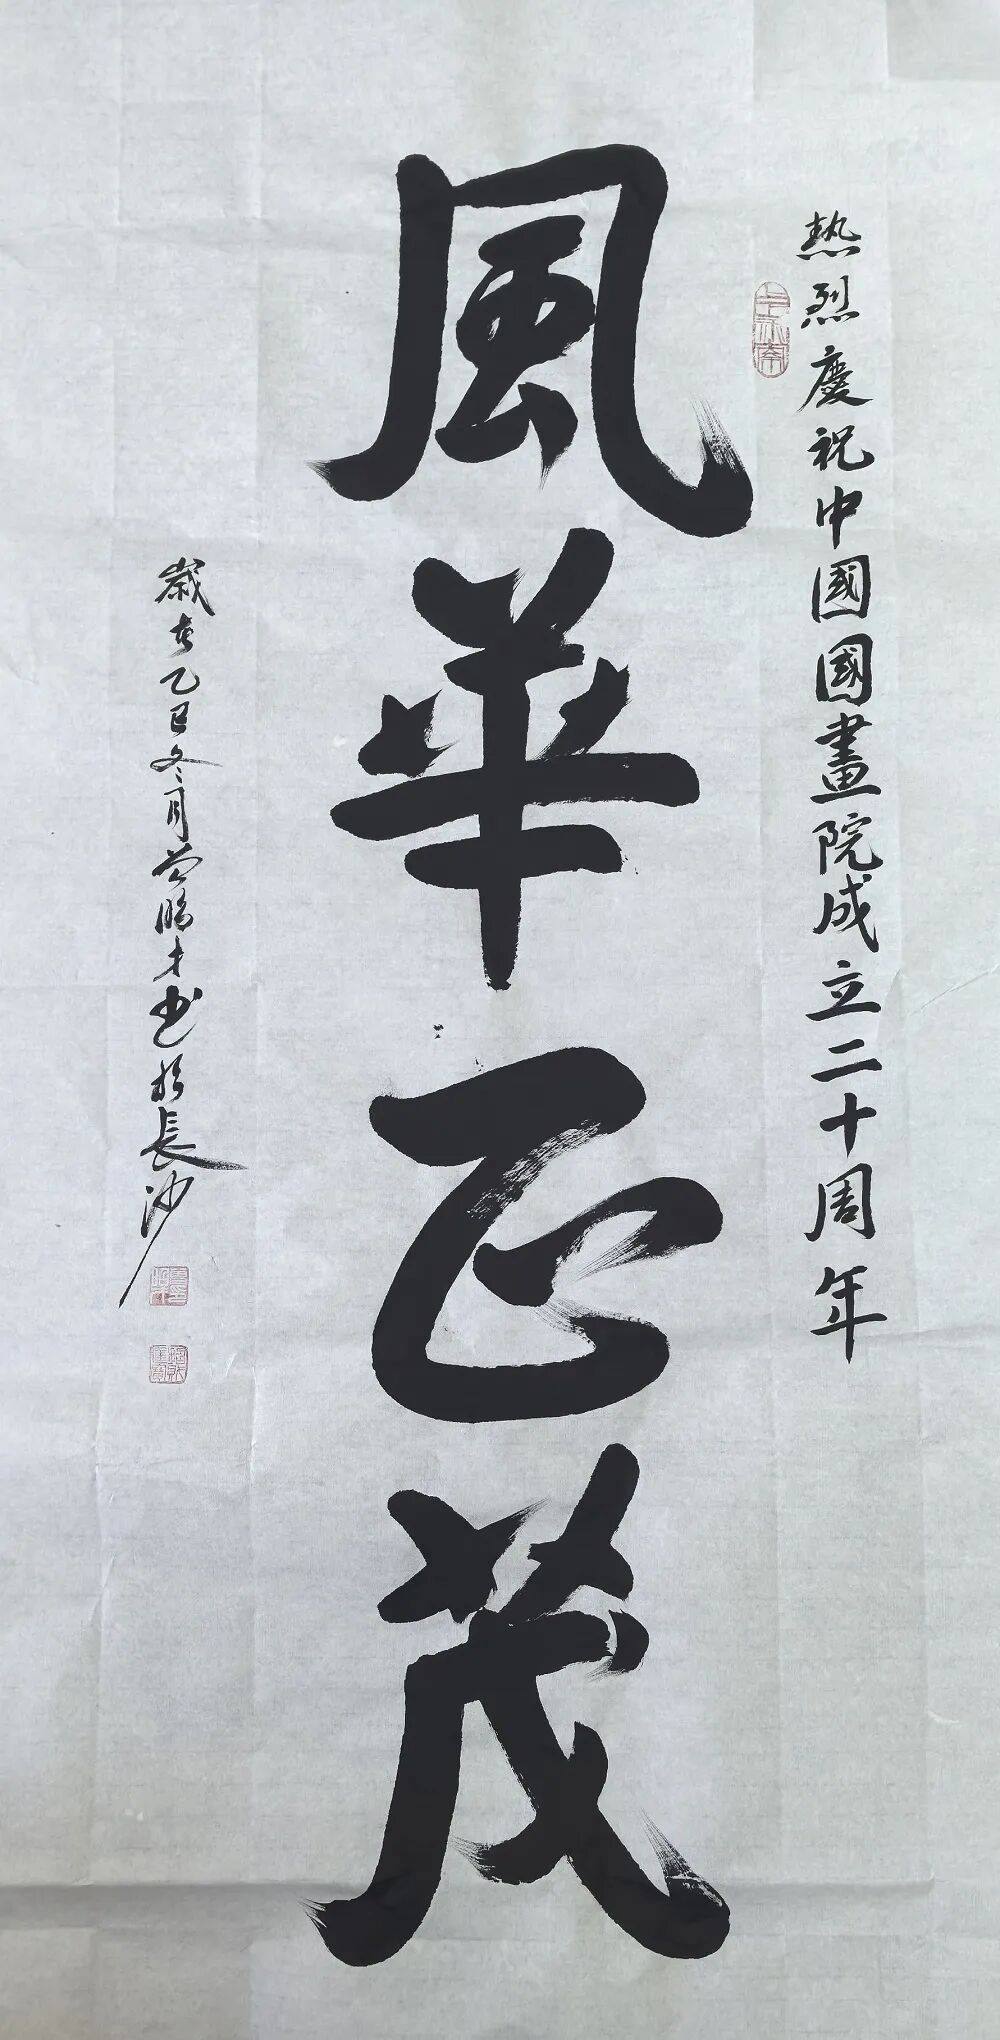 熱烈慶祝中國國畫院成立二十周年
風華正茂
歲在乙巳冬月 才书於長沙